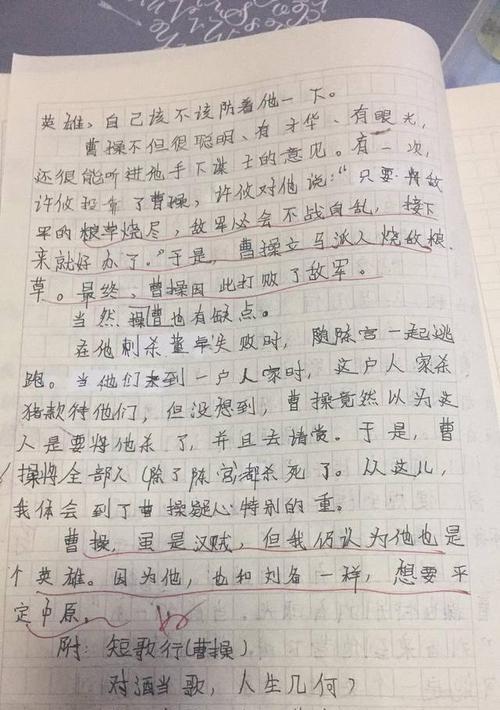 英雄，自己该不该防着他一下。
曹操不但很聪明、有才华、有眼光，
还很能听进他手下谋士的意见。有一次，
许攸投靠了曹操，许攸对他说：“只要将敌
军的粮草烧尽，敌军必会不战自乱，接下
来就好办了。”于是，曹操立马派人烧敌粮
草。最终，曹操因此打败了敌军。
当然操曹也有缺点。
在他刺杀董卓失败时，随陈宫一起逃
跑。当他们来到一户人家时，这户人家杀
猪款待他们，但没想到，曹操竟然以为这
人是要将他杀了，并且去请赏。于是，曹
操将全部人(除了陈宫)都杀死了。从这儿，
我体会到了曹操疑心特别的重。
曹操，虽是汉贼，但我仍认为他也是
个英雄。因为他，也和刘备一样，想要平
定中原。
附：短歌行(曹操)
对酒当歌，人生几何？